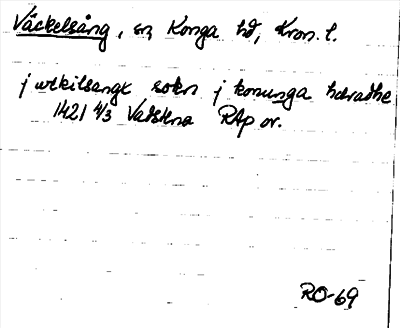 Väckelsång, sn, Konga hd, Kron. l.
j wekilsangx sokn j konunga hæradhe
1421 4/3 Vadstena RAp or.
RO-69